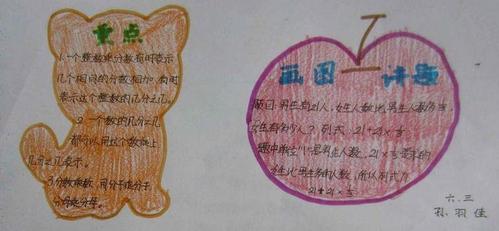 重点
1.一个整数乘分数有时表示
几个相同的分数相加,有时
表示这个整数的几分之几。
2.一个数的几分之几
都可以用这个数乘上
几分之几表示。
3.分数乘数,同分子乘分子,
分母乘分母。
画图 讲题
题目:男生有21人,女生人数比男生人数多
女生有多少人?列式:21+21×
题中单位"1"是男生人数,21× 是求的
女生比男生多的人数,所以列式为
21+21×
六.三
孔羽佳